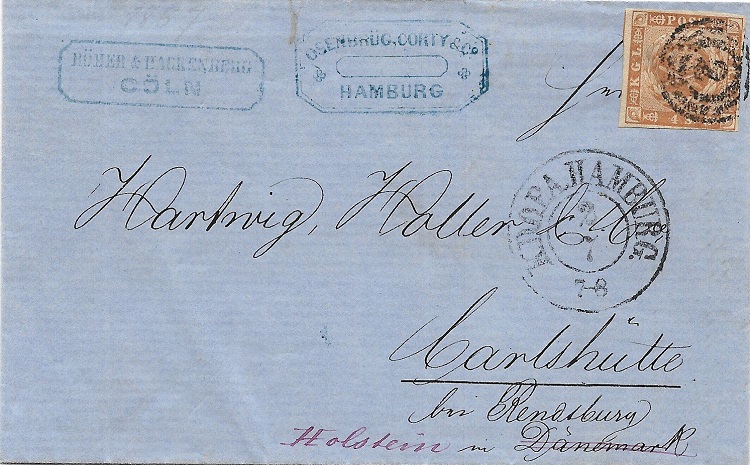 1857
RÖMER & HACKENBERG
CÖLN
OSENBRÜG, CORTY & Co
HAMBURG
KGL POST
4
Hartwig, Holler & Co
K.D.O.P.A. HAMBURG.
7
7-8
Carlshütte
bei Rendsburg
Holstein in Dänemark